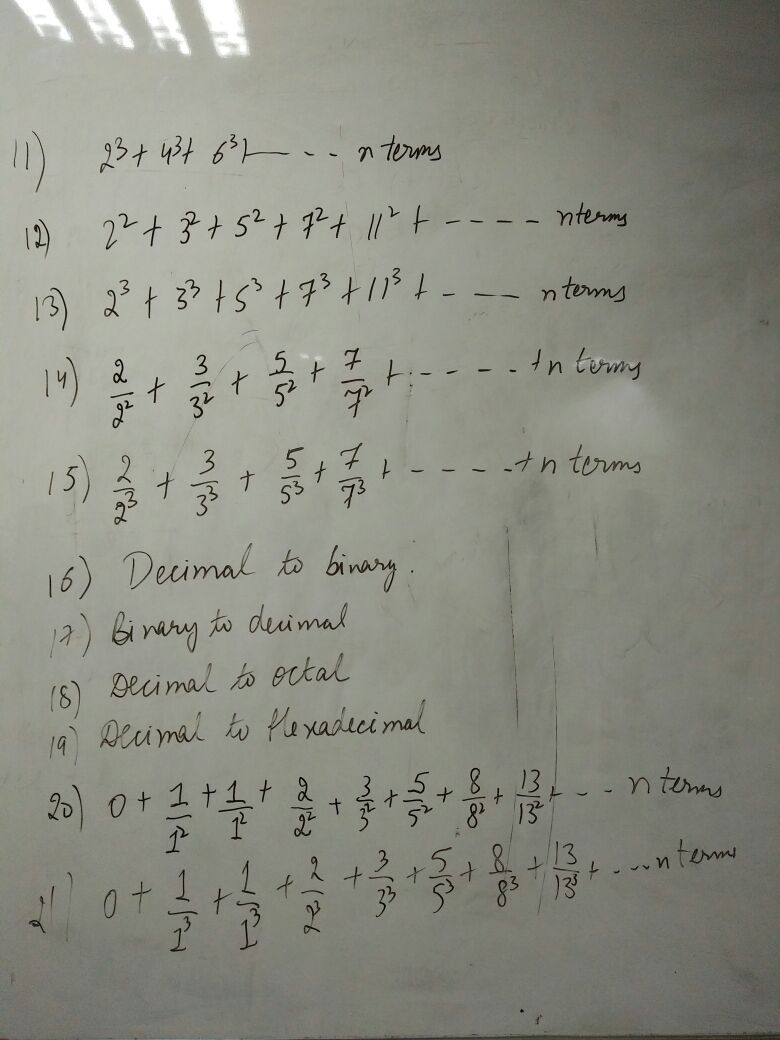 11) 2³ + 4³ + 6³ + --- n terms
12) 2² + 3² + 5² + 7² + 11² + ---- n terms
13) 2³ + 3³ + 5³ + 7³ + 11³ + --- n terms
14) 2/2² + 3/3² + 5/5² + 7/7² + ----- + n terms
15) 2/2³ + 3/3³ + 5/5³ + 7/7³ + ----- + n terms
16) Decimal to binary.
17) Binary to decimal
18) Decimal to octal
19) Decimal to Hexadecimal
20) 0 + 1/1² + 1/1² + 2/2² + 3/3² + 5/5² + 8/8² + 13/13² + --- n terms
21) 0 + 1/1³ + 1/1³ + 2/2³ + 3/3³ + 5/5³ + 8/8³ + 13/13³ + ... n terms